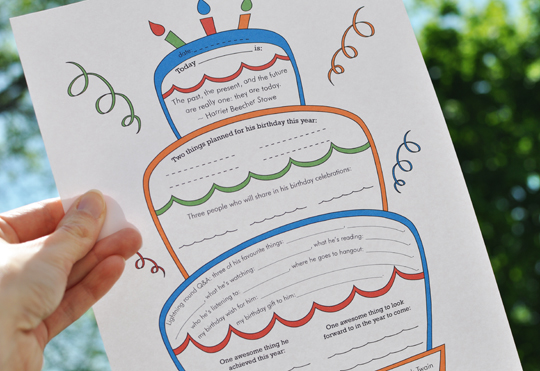 date:
Today is:
The past, the present, and the future
are really one: they are today.
— Harriet Beecher Stowe
Two things planned for his birthday this year:
Three people who will share in his birthday celebrations:
Lightning round Q&A: three of his favourite things:
what he's watching: what he's reading:
who he's listening to: where he goes to hangout:
my birthday wish for him:
my birthday gift to him:
One awesome thing he
achieved this year:
One awesome thing to look
forward to in the year to come:
Twain